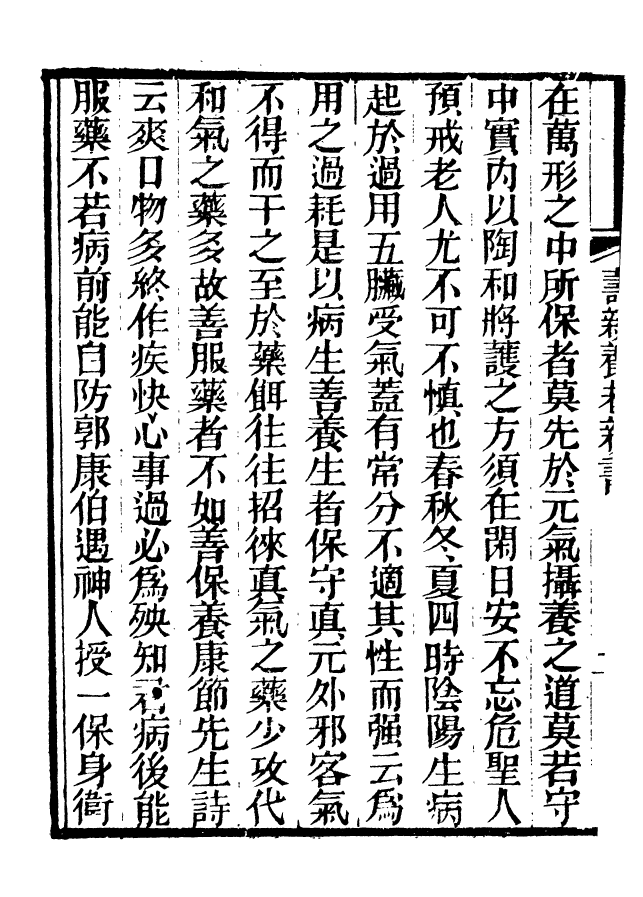 壽親養老新書
在萬形之中所保者莫先於元氣攝養之道莫若守
中實內以陶和將護之方須在閑日安不忘危聖人
預戒老人尤不可不慎也春秋冬夏四時陰陽生病
起於過用五臟受氣蓋有常分不適其性而强云為
用之過耗是以病生善養生者保守真元外邪客氣
不得而干之至於藥餌往往招徠真氣之藥少攻代
和氣之藥多故善服藥者不如善保養康節先生詩
云爽口物多終作疾快心事過必爲殃知君病後能
服藥不若病前能自防郭康伯遇神人授一保身衞